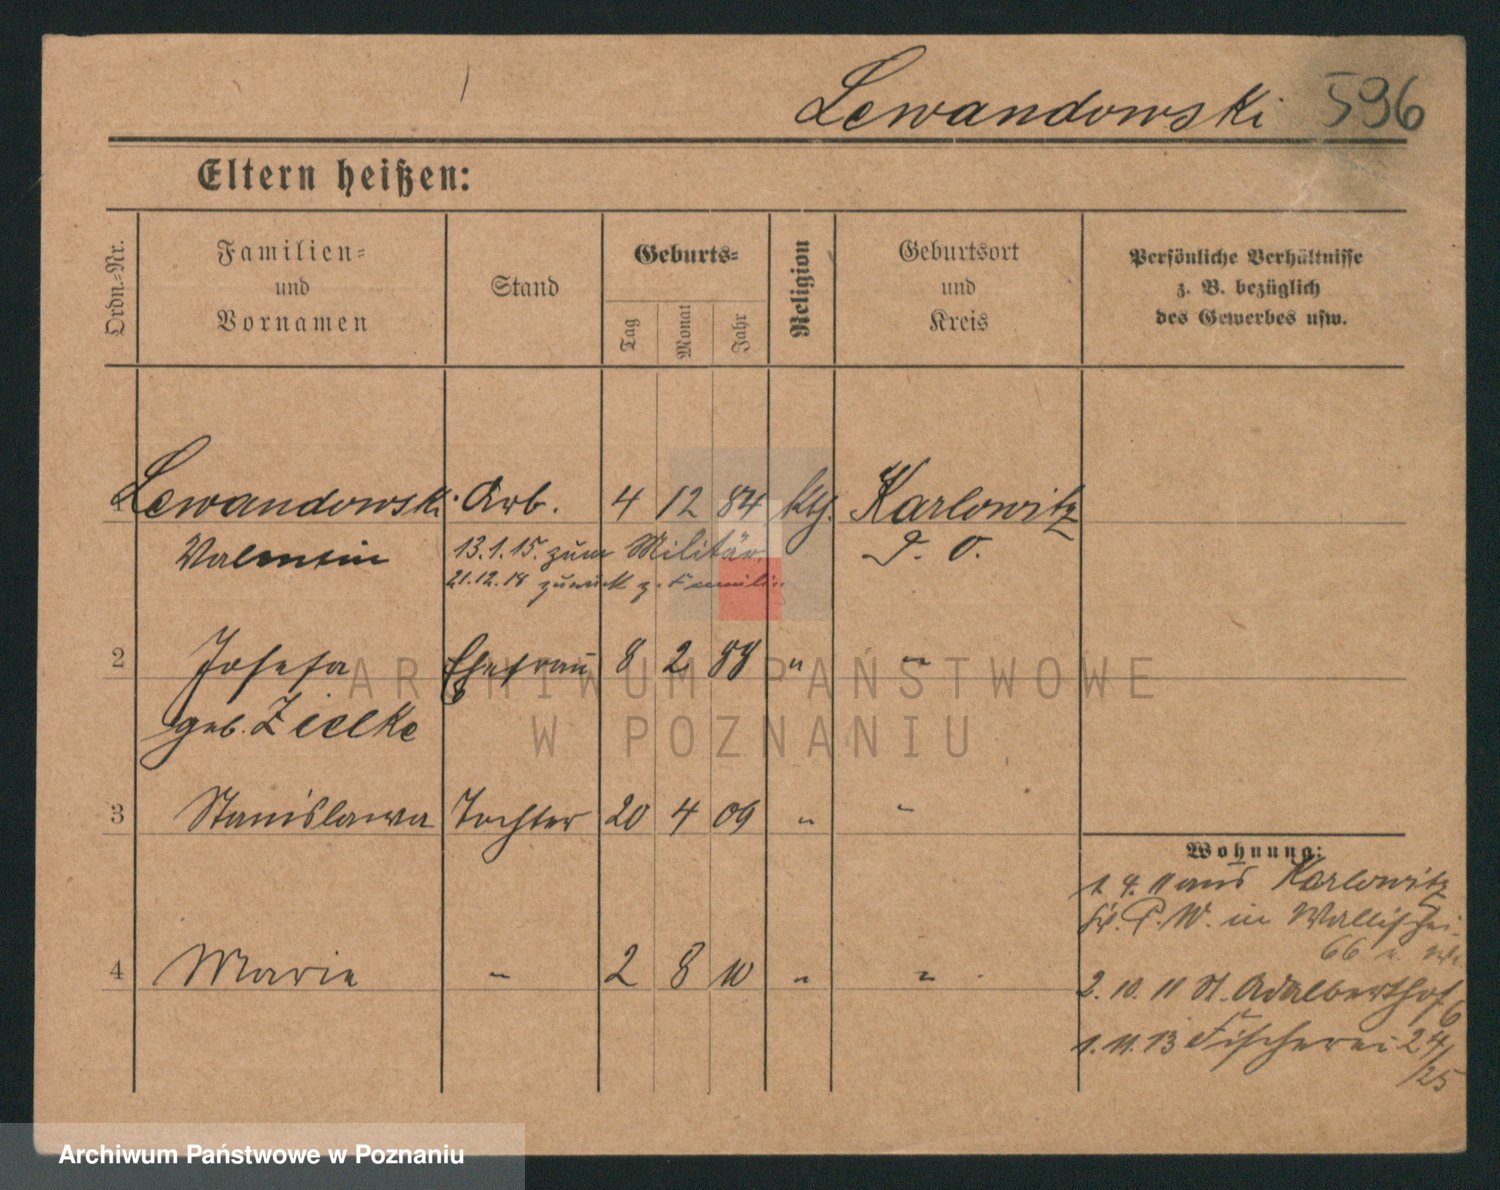 Lewandowski 596
Eltern heißen:
Ordn.-Nr.
Familien-
und
Vornamen
Stand
Geburts-
Tag
Monat
Jahr
Religion
Geburtsort
und
Kreis
Persönliche Verhältnisse
z. B. bezüglich
des Gewerbes usw.
Lewandowski Arb. 4 12 84 kth. Karlowitz
Valentin 13.1.15. zum Militär. P. O.
21.12.18 zurück z. Familie
2 Josefa Ehefrau 8 2 88 " "
geb. Zielke
3 Stanislawa Tochter 20 4 09 " "
Wohnung:
1. 4. 11 aus Karlowitz
P. W. in Wallischei
66
4 Marie " 2 8 10 " "
2. 10. 11 St. Adalberthof 6
1. 11. 13 Fischerei 24/25
ARCHIWUM PAŃSTWOWE
W POZNANIU
Archiwum Państwowe w Poznaniu